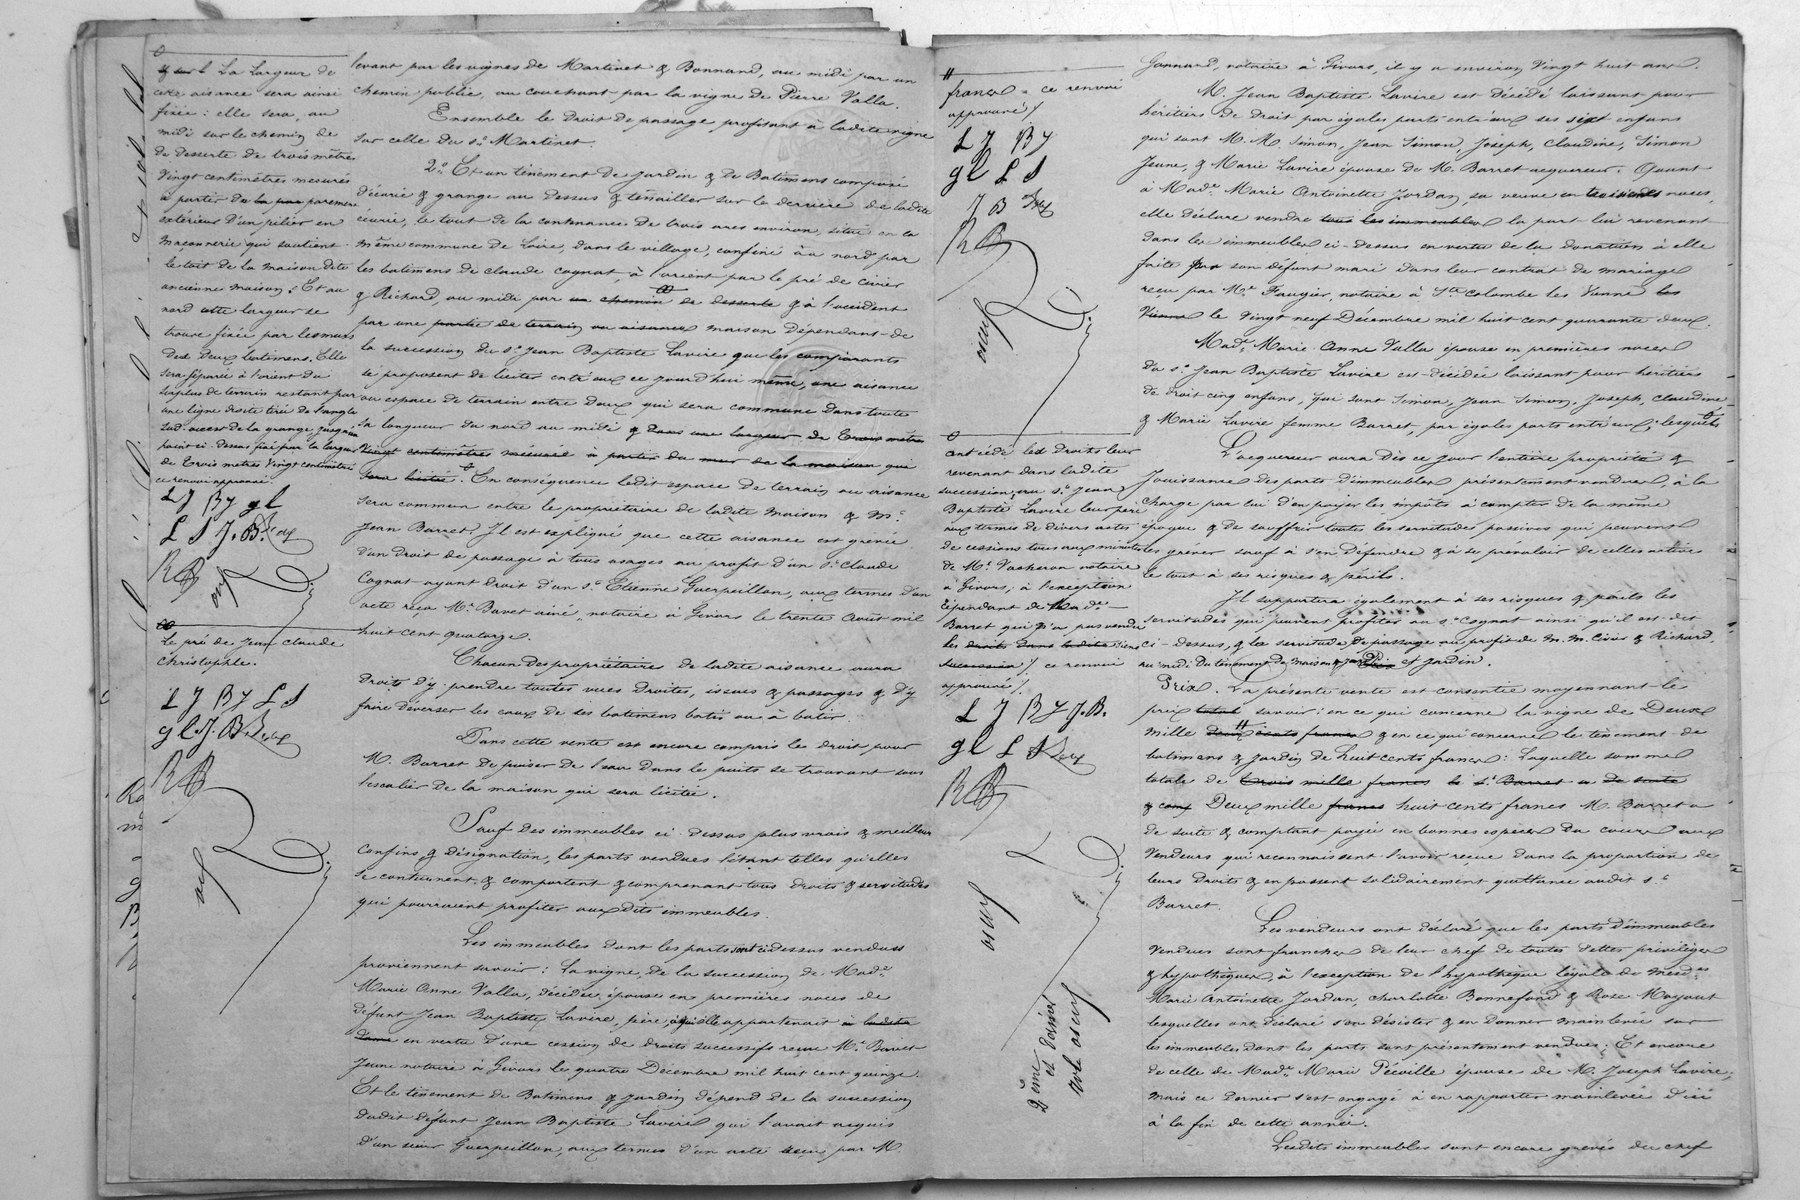 levant par les vignes de Martinet & Bonnard, au midi par un
chemin public, au couchant par la vigne de Pierre Valla.
Ensemble le Droit de passage profitant à ladite vigne
sur celle du sr. Martinet.
2° Et un tènement de Jardin & de Batimens composé
d'écurie & grange au dessus & tenailler sur le derrière de ladite
écurie, le tout de la contenance de trois ares environ, situé en la
même commune de Loire, dans le village, confiné au nord par
les batimens de claude cognat, à l'orient par le pré de civier
& Richard, au midi par un chemin de desserte & à l'occident
par une partie de terrain ou aisance maison dépendant de
la succession du sr. Jean Baptiste Lavire que les comparants
se proposent de liciter entr'eux ce jourd'hui même, une aisance
ou espace de terrain entre Deux qui sera commune dans toute
sa longueur du nord au midi & dans une largeur de trois mètres
vingt centimètres mesurés à partir du mur de la maison qui
sera licitée. En conséquence ledit espace de terrain ou aisance
sera commun entre le propriétaire de ladite maison & Mr.
Jean Barret. Il est expliqué que cette aisance est grevée
d'un Droit de passage à tous usages au profit d'un sr. Claude
Cognat ayant Droit d'un sr. Etienne Guerpillon, aux termes d'un
acte reçu Mr. Bavet ainé, notaire à Givors le trente Août mil
huit cent quatorze.
Chacun des propriétaire de ladite aisance aura
Droits d'y prendre toutes vues Droites, issues & passages & d'y
faire déverser les eaux de ses batimens batis ou à batir.
Dans cette vente est encore compris le droit pour
M. Barret de puiser de l'eau Dans le puits se trouvant sous
l'escalier de la maison qui sera licitée.
Sauf Des immeubles ci-dessus plus vrais & meilleurs
confins & Désignation, les parts vendues l'étant telles qu'elles
se contiennent & comportent & comprenant tous droits & servitudes
qui pourraient profiter aux dits immeubles.
Les immeubles dont les parts sont ci dessus vendues
proviennent savoir: La vigne, de la succession de Mad.e
Marie Anne Valla, décédée, épouse en premières noces de
défunt Jean Baptiste Lavire, père, à qui elle appartenait à ladite
Dame en vertu d'une cession de droits successifs reçue Mr. Bavet
Jeune notaire à Givors le quatre Décembre mil huit cent quinze.
Et le tènement de Batimens & jardin dépend de la succession
dudit défunt Jean Baptiste Lavire qui l'avait acquis
d'un sieur Guerpillon, aux termes d'un acte reçu par M.
La Largeur de
cette aisance sera ainsi
fixée: elle sera, au
midi sur le chemin de
de desserte de trois mètres
vingt centimètres mesurés
à partir du parement
extérieur d'un pilier en
maçonnerie qui soutient
le toit de la maison dite
ancienne maison. Et au
nord cette largeur se
trouve fixée par les murs
Des Deux batimens. Elle
sera séparée à l'orient du
surplus de terrain restant par
une ligne droite tirée de l'angle
sud-ouest de la grange jusqu'au
point ci-dessus fixé pour la largeur
de trois metres vingt centimètres
ce renvoi approuvé.
LJ BJ gl
LS J.B.
RB
Le pré de Jean claude
Christophle.
LJ BJ LS
gl J.B.
RB
Gonnard, notaire à Givors, il y a environ Vingt huit ans.
M. Jean Baptiste Lavire est décédé laissant pour
héritiers de droit par égales parts entr'eux ses sept enfans
qui sont M.M. Simon, Jean Simon, Joseph, Claudine, Simon
Jeune, & Marie Lavire épouse de M. Barret acquereur. Quant
à Mad.e Marie Antoinette Jordan, sa veuve en noces,
elle déclare vendre tous les immeubles la part lui revenant
dans les immeubles ci-dessus en vertu de la Donation à elle
faite par son défunt mari dans leur contrat de mariage
reçu par Mr. Faugier, notaire à Ste. colombe les Vienne les
Vienne le vingt neuf Décembre mil huit cent quarante deux.
Mad.e Marie Anne Valla épouse en premières noces
du sr. Jean Baptiste Lavire est décédée laissant pour héritiers
de droit cinq enfans, qui sont Simon, Jean Simon, Joseph, claudine
& Marie Lavire femme Barret, par égales parts entr'eux; lesquels
L'acquereur aura Dès ce jour l'entière propriété &
Jouissance des parts d'immeubles présentement vendues, à la
charge par lui d'en payer les impôts à compter de la même
époque & de souffrir toutes les servitudes passives qui peuvent
les gréver sauf à s'en défendre & à se prévaloir de celles actives
le tout à ses risques & périls.
Il supportera également à ses risques & périls les
servitudes qui peuvent profiter au sr. Cognat ainsi qu'il est dit
ci-dessus, & la servitude de passage au profit de M.M. Civier & Richard,
au midi du tènement de maison & jardin et jardin.
Prix. La présente vente est consentie moyennant le
prix total savoir: en ce qui concerne la vigne de Deux
mille deux cents francs & en ce qui concerne le tènement de
batimens & jardin de huit cents francs: Laquelle somme
totale de trois mille francs le sr. Barret a de suite
& comp Deux mille francs huit cents francs M. Barret a
de suite & comptant payée en bonnes espèces du cours aux
Vendeurs qui reconnaissent l'avoir reçue dans la proportion de
leurs Droits & en passent solidairement quittance audit sr.
Barret.
Les vendeurs ont déclaré que les parts d'immeubles
vendues sont franches de leur chef de toutes dettes privilèges
& hypothèques, à l'exception de l'hypothèque légale de mesd.es
Marie Antoinette Jordan, charlotte Bonnefond & Rose Moyout
lesquelles ont déclaré s'en désister & en Donner mainlevée sur
les immeubles dont les parts sont présentement vendues; Et encore
de celle de Mad.e Marie Péeville épouse de M. Joseph Lavire;
mais ce Dernier s'est engagé à en rapporter mainlevée d'ici
à la fin de cette année.
Lesdits immeubles sont encore grevés du chef
francs = ce renvoi
approuvé /
LJ BJ
gl LS
JB
RB
ont cédé les Droits leur
revenant dans ladite
succession, au sr. Jean
Baptiste Lavire leur père
aux termes de divers actes
de cessions tous aux minutes
de Mr. Vacheron notaire
à Givors; à l'exception
cependant de Mad.e
Barret qui n'a pas vendu
les droits dans ladite siens
succession / ce renvoi
approuvé /.
LJ BJ J.B.
gl LS
RB
2ème et Dernier